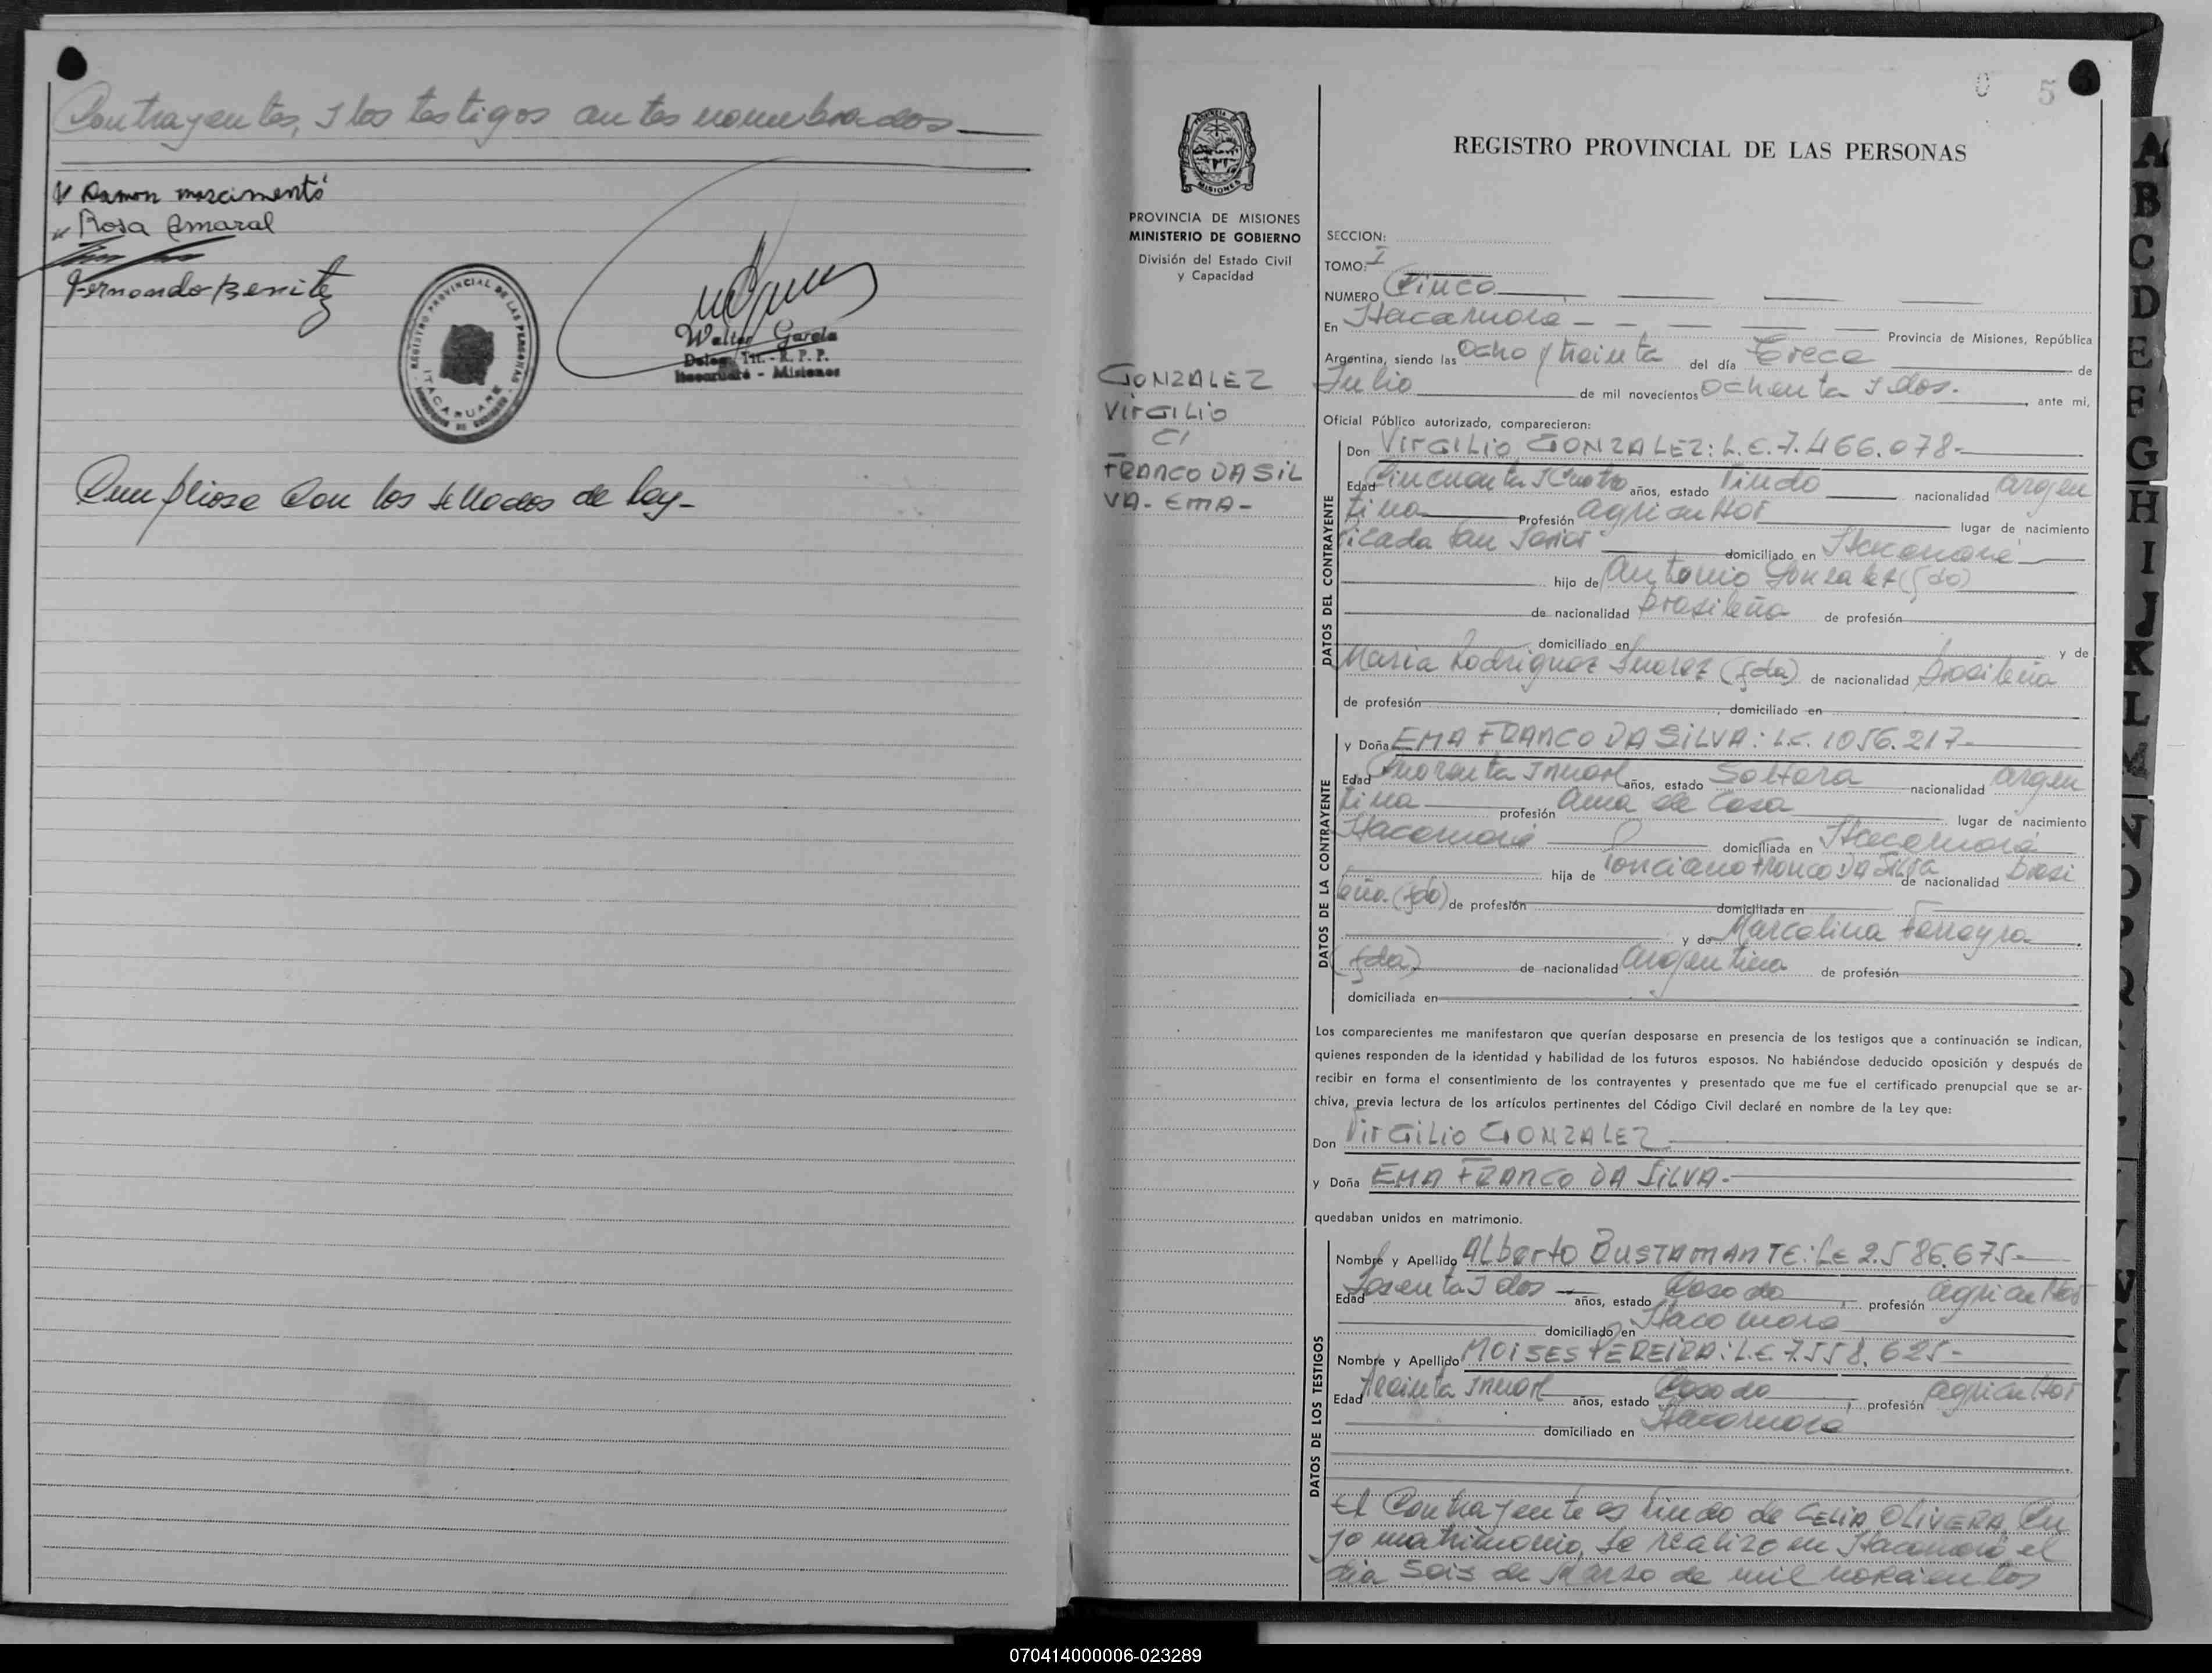 Contrayentes, y los testigos antes nombrados
Ramon nascimento
Rosa Amaral
Fernando Benitez
REGISTRO PROVINCIAL DE LAS PERSONAS
ITACARUARE
Walter García
Deleg. Tit. - R. P. P.
Itacaruaré - Misiones
Cumpliose Con los sellados de ley-
0 5
PROVINCIA DE MISIONES
MINISTERIO DE GOBIERNO
División del Estado Civil
y Capacidad
GONZALEZ
VirGILio
C/
FRANCO DA SIL
VA- EMA-
REGISTRO PROVINCIAL DE LAS PERSONAS
SECCION:
TOMO: I
NUMERO Cinco
En Itacaruaré Provincia de Misiones, República
Argentina, siendo las Ocho y treinta del día Trece de
Julio de mil novecientos Ochenta y dos. ante mi,
Oficial Público autorizado, comparecieron:
DATOS DEL CONTRAYENTE
Don VirGILio GONZALEZ: L.E. 7.466.078-
Edad Cincuenta y Cuatro años, estado Viudo nacionalidad Argen
tina Profesión Agricultor lugar de nacimiento
Picada San Javier domiciliado en Itacaruaré
hijo de Antonio Gonzalez (fdo)
de nacionalidad brasileña de profesión
domiciliado en y de
Maria Rodriguez Suarez (fda) de nacionalidad brasileña
de profesión domiciliado en
DATOS DE LA CONTRAYENTE
y Doña EMA FRANCO DA SiLVA: L.C. 1056.217-
Edad Cuarenta y nueve años, estado Soltera nacionalidad Argen
tina profesión Ama de Casa lugar de nacimiento
Itacaruaré domiciliada en Itacaruaré
hija de Ponciano Franco DA Silva de nacionalidad brasi
leña. (fdo) de profesión domiciliada en
y de Marcolina Ferreyra
(fda) de nacionalidad Argentina de profesión
domiciliada en
Los comparecientes me manifestaron que querían desposarse en presencia de los testigos que a continuación se indican,
quienes responden de la identidad y habilidad de los futuros esposos. No habiéndose deducido oposición y después de
recibir en forma el consentimiento de los contrayentes y presentado que me fue el certificado prenupcial que se ar-
chiva, previa lectura de los artículos pertinentes del Código Civil declaré en nombre de la Ley que:
Don VirGiLio GONZALEZ
y Doña EMA FRANCO DA SiLVA-
quedaban unidos en matrimonio.
DATOS DE LOS TESTIGOS
Nombre y Apellido ALberto BUSTAMANTE: LE 2.586.675-
Edad Sesenta y dos años, estado Casado profesión Agricultor
domiciliado en Itacaruaré
Nombre y Apellido MOiSES PEREiRA: L.E 7.558.625-
Edad Treinta y nueve años, estado Casado profesión Agricultor
domiciliado en Itacaruaré
El Contrayente es Viudo de CELIA OLiVERA, Cu
yo matrimonio, se realizo en Itacaruaré el
dia Seis de Marzo de mil novecientos
070414000006-023289